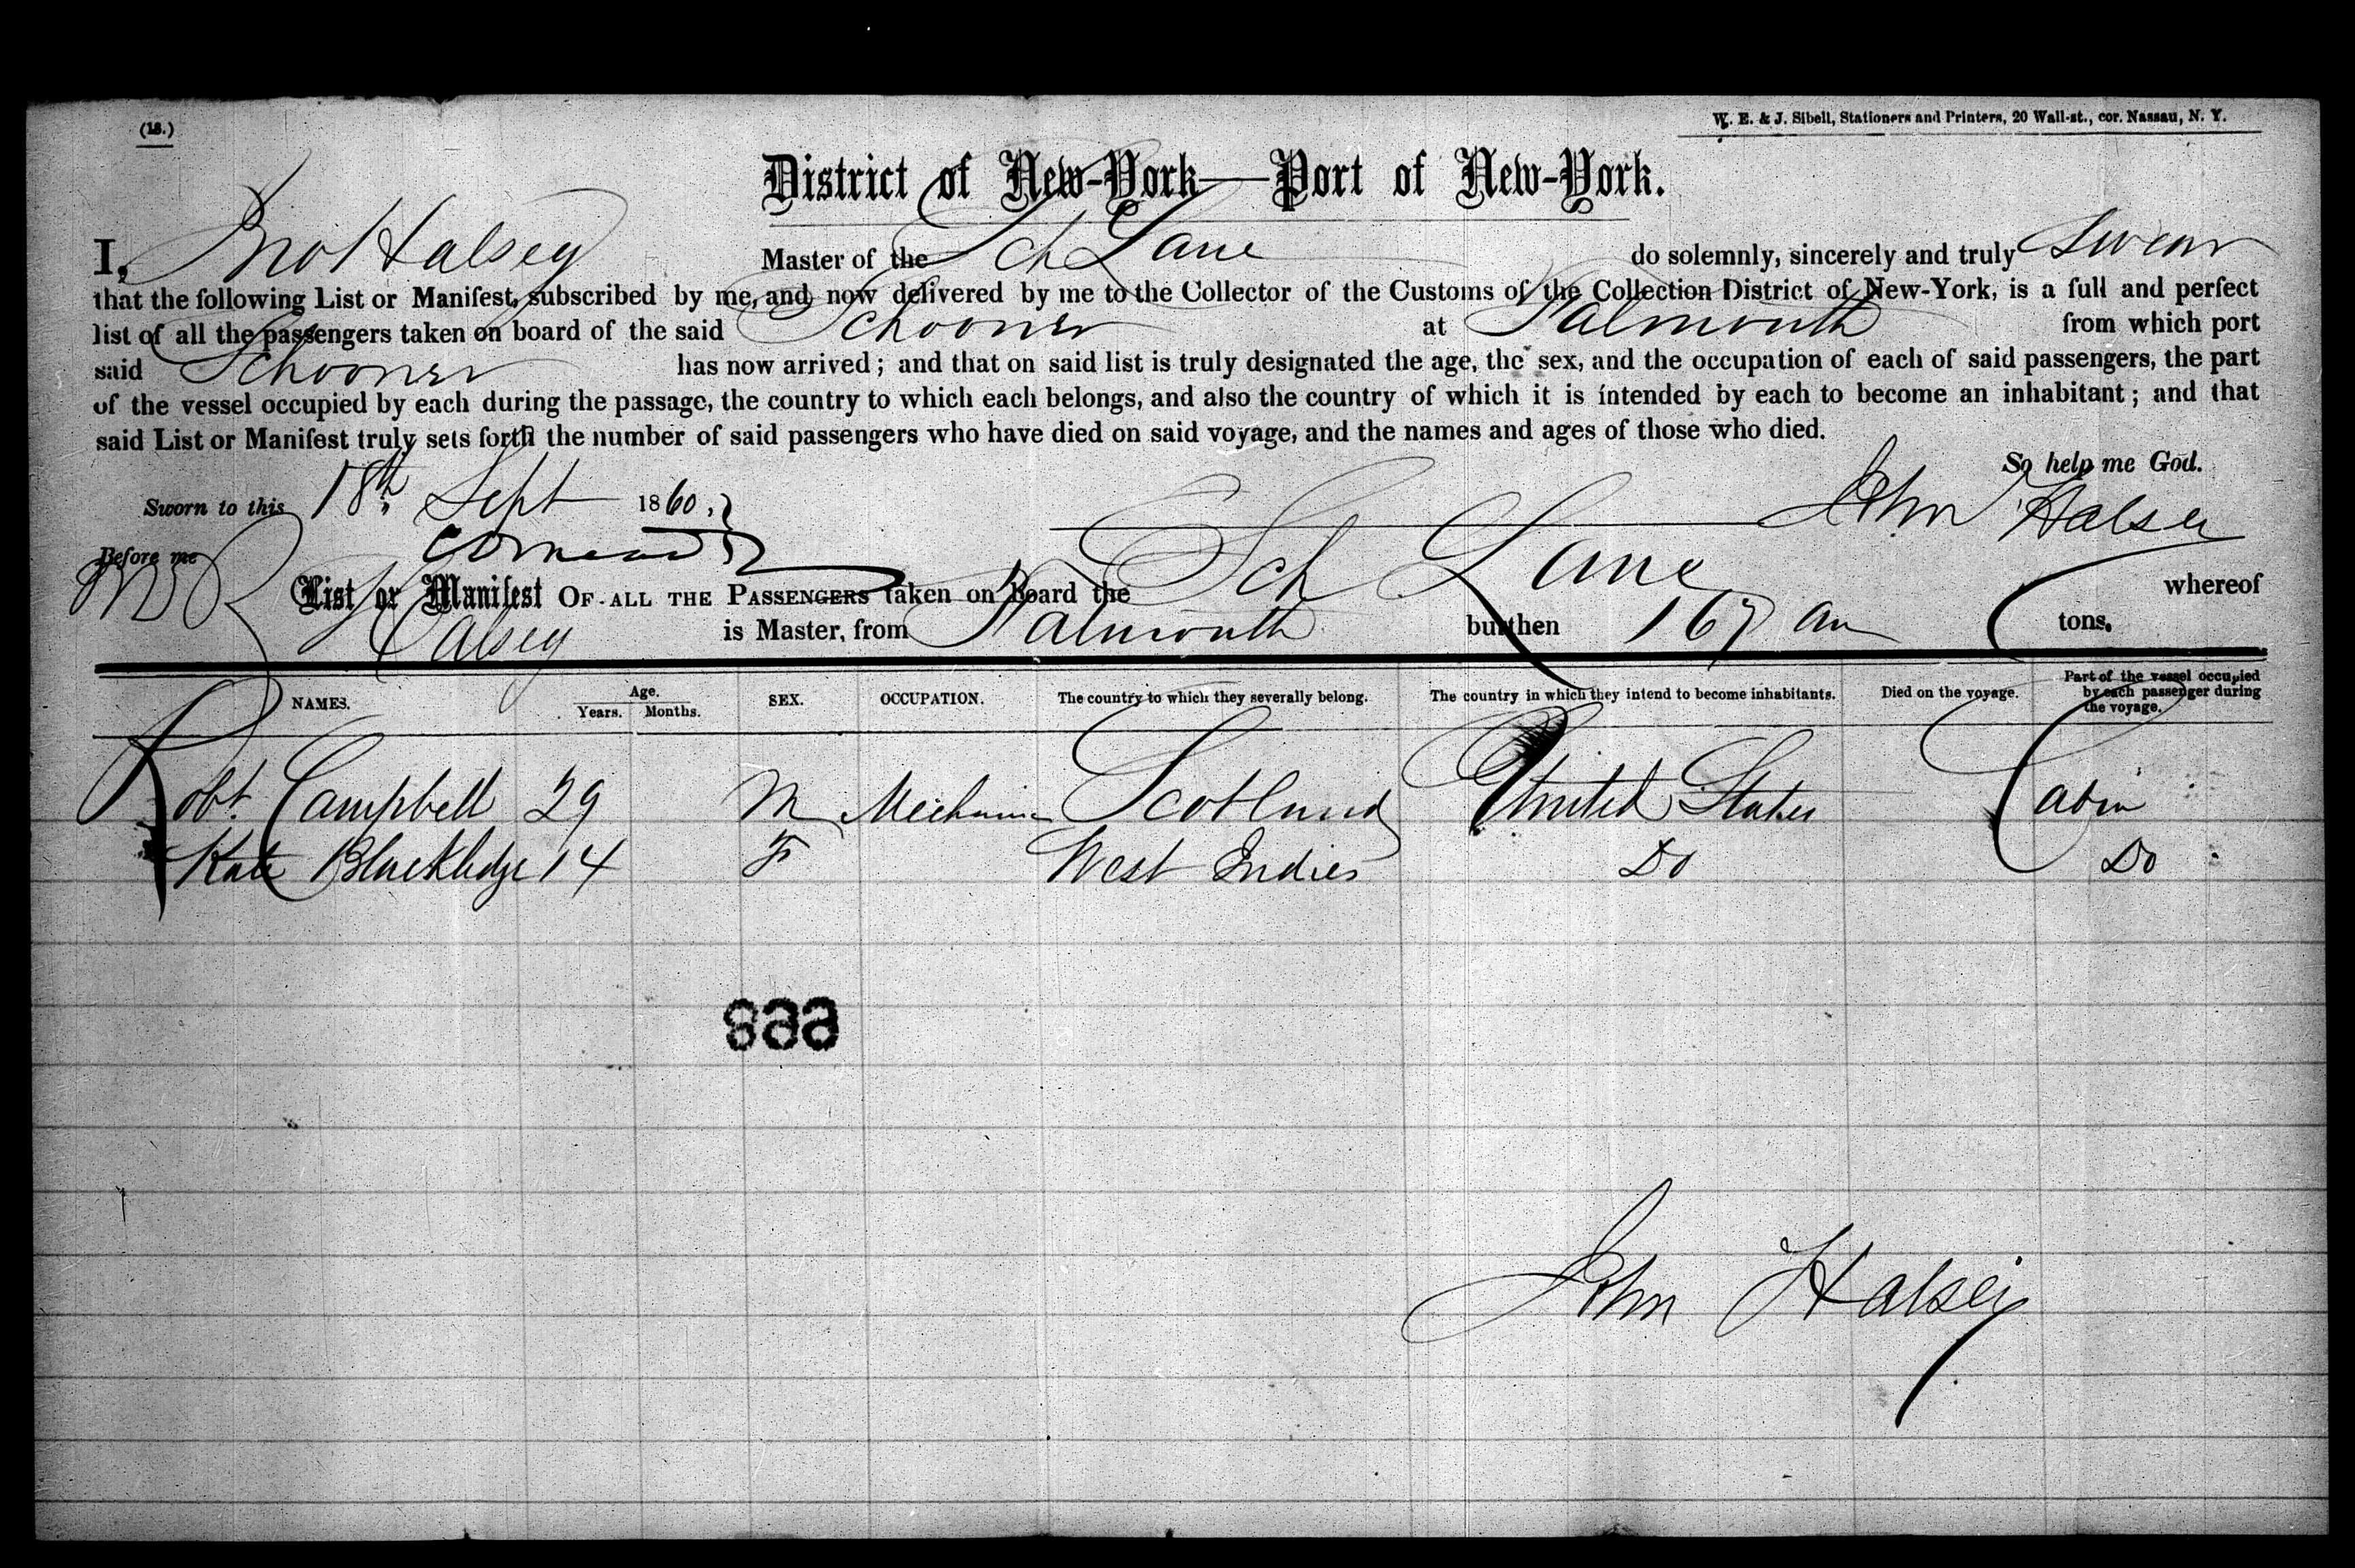 (18.)
W. E. & J. Sibell, Stationers and Printers, 20 Wall-st., cor. Nassau, N. Y.
District of New-York—Port of New-York.
I, Jno Halsey Master of the Sch Lane do solemnly, sincerely and truly swear
that the following List or Manifest, subscribed by me, and now delivered by me to the Collector of the Customs of the Collection District of New-York, is a full and perfect
list of all the passengers taken on board of the said Schooner at Falmouth from which port
said Schooner has now arrived; and that on said list is truly designated the age, the sex, and the occupation of each of said passengers, the part
of the vessel occupied by each during the passage, the country to which each belongs, and also the country of which it is intended by each to become an inhabitant; and that
said List or Manifest truly sets forth the number of said passengers who have died on said voyage, and the names and ages of those who died.
So help me God.
Sworn to this 18th Sept 1860, John Halsey
Before me
List or Manifest OF ALL THE PASSENGERS taken on board the Sch Lane whereof
Halsey is Master, from Falmouth burthen 167 tons.
NAMES. Age. Years. Months. SEX. OCCUPATION. The country to which they severally belong. The country in which they intend to become inhabitants. Died on the voyage. Part of the vessel occupied by each passenger during the voyage.
Robt. Campbell 29 M Mechanic Scotland United States Cabin
Kate Blackledge 14 F West Indies Do Do
John Halsey